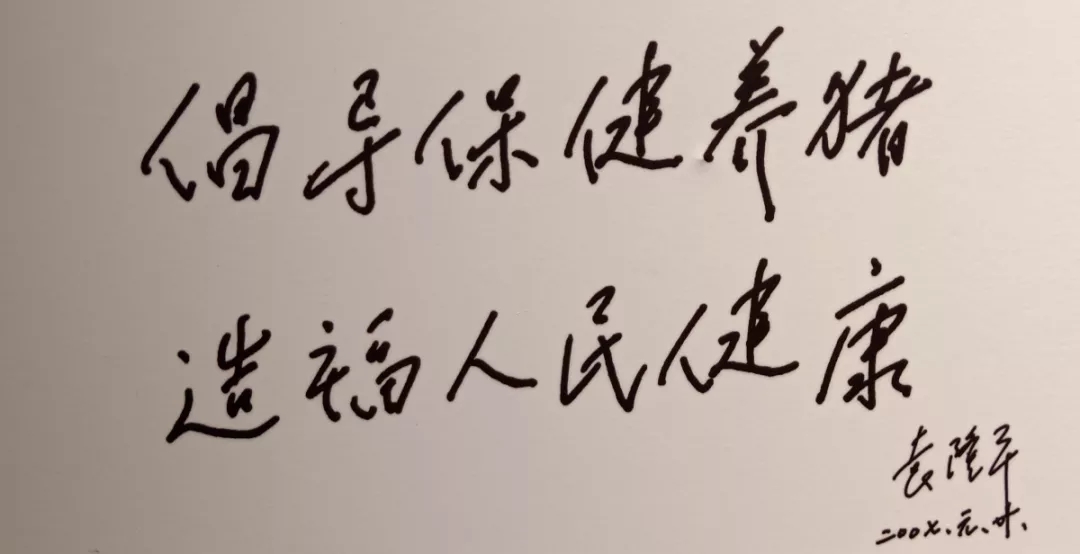 倡导保健养猪
造福人民健康
袁隆平
二00七、元、廿、